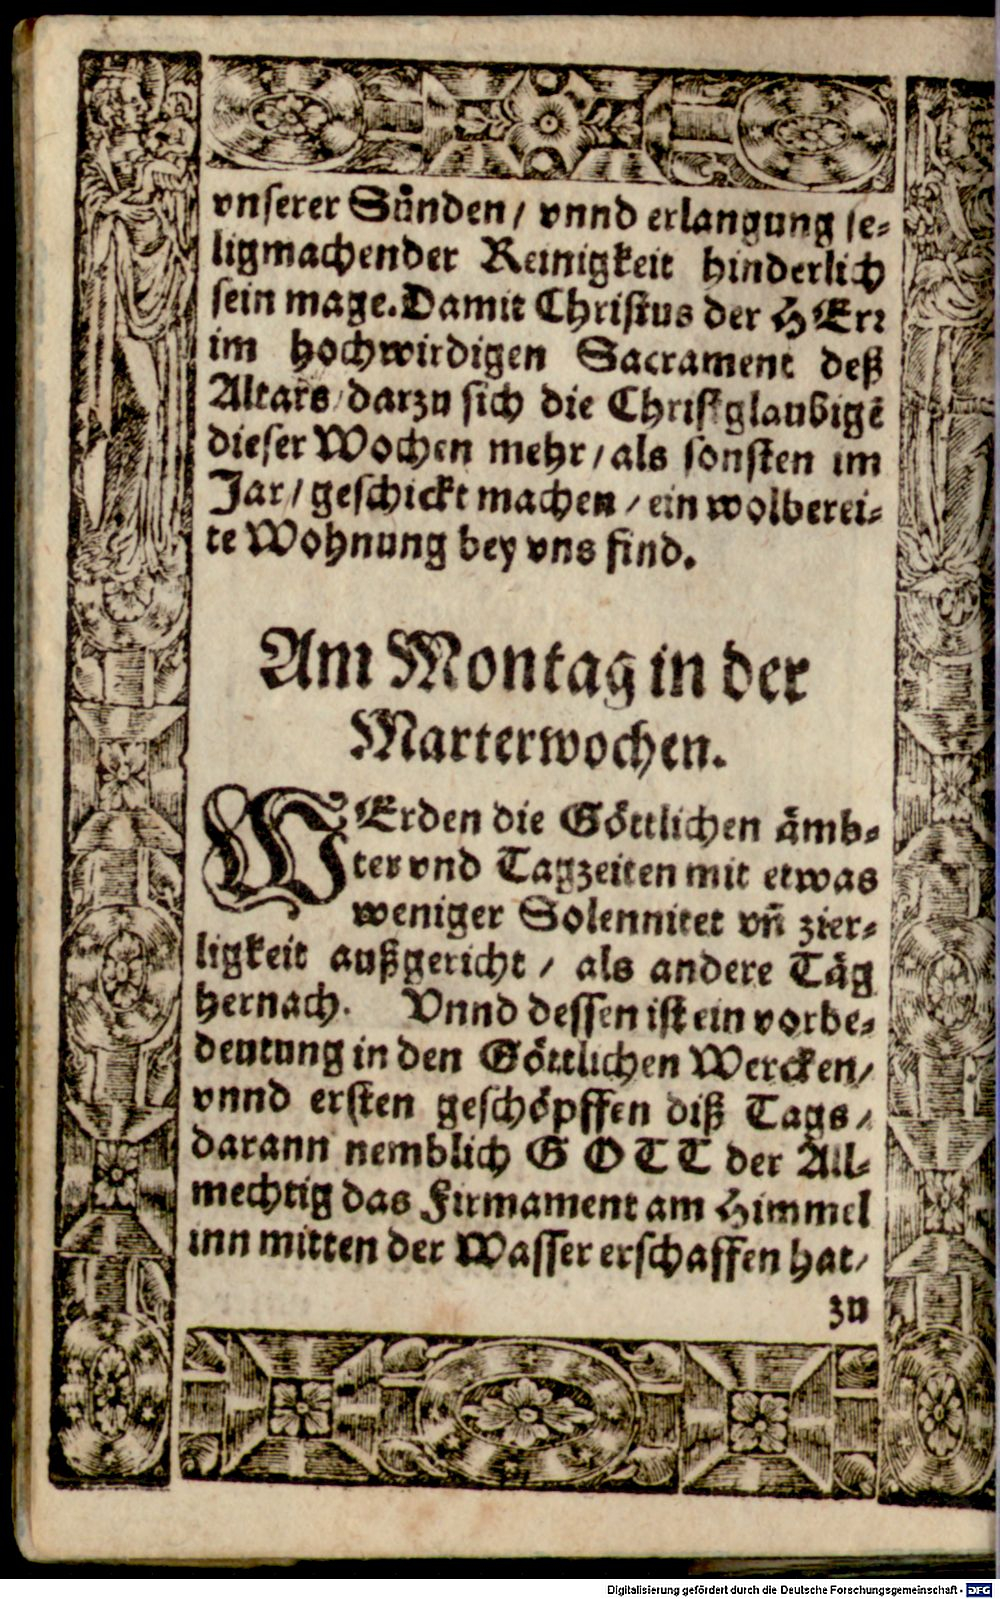 vnserer Sünden / vnnd erlangung se-
ligmachender Reinigkeit hinderlich
sein mage. Damit Christus der HErr
im hochwirdigen Sacrament deß
Altars / darzu sich die Christglaubigē
dieser Wochen mehr / als sonsten im
Jar / geschickt machen / ein wolberei-
te Wohnung bey vns find.
Am Montag in der
Marterwochen.
WErden die Göttlichen ämb-
ter vnd Tagzeiten mit etwas
weniger Solennitet vñ zier-
ligkeit außgericht / als andere Täg
hernach. Vnnd dessen ist ein vorbe-
deutung in den Göttlichen Wercken /
vnnd ersten geschöpffen diß Tags /
darann nemblich GOTT der All-
mechtig das Firmament am Himmel
inn mitten der Wasser erschaffen hat /
zu
Digitalisierung gefördert durch die Deutsche Forschungsgemeinschaft - DFG